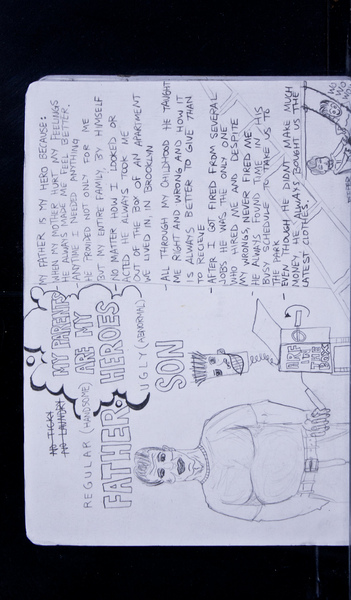 NO TICKY
NO LAUNDRY
REGULAR (HANDSOME)
FATHER
MY PARENTS
ARE MY
HEROES
UGLY (ABNORMAL)
SON
THE
BOX
MY FATHER IS MY HERO BECAUSE:
WHEN MY MOTHER HURT MY FEELINGS
HE ALWAYS MADE ME FEEL BETTER.
ANYTIME I NEEDED ANYTHING
HE PROVIDED NOT ONLY FOR ME
BUT MY ENTIRE FAMILY, BY HIMSELF
NO MATTER HOW I LOOKED OR
ACTED HE ALWAYS TOOK ME
OUT OF THE BOX OF AN APARTMENT
WE LIVED IN, IN BROOKLYN
- ALL THROUGH MY CHILDHOOD HE TAUGHT
ME RIGHT AND WRONG AND HOW IT
IS ALWAYS BETTER TO GIVE THAN
TO RECIEVE
- AFTER I GOT FIRED FROM SEVERAL
JOBS HE WAS THE ONLY ONE
WHO HIRED ME AND DESPITE
MY WRONGS, NEVER FIRED ME
- HE ALWAYS FOUND TIME IN HIS
BUSY SCHEDULE TO TAKE US TO
THE PARK
- EVEN THOUGH HE DIDNT MAKE MUCH
MONEY, HE ALWAYS BOUGHT US THE
LATEST CLOTHES.
HO
HO
HO